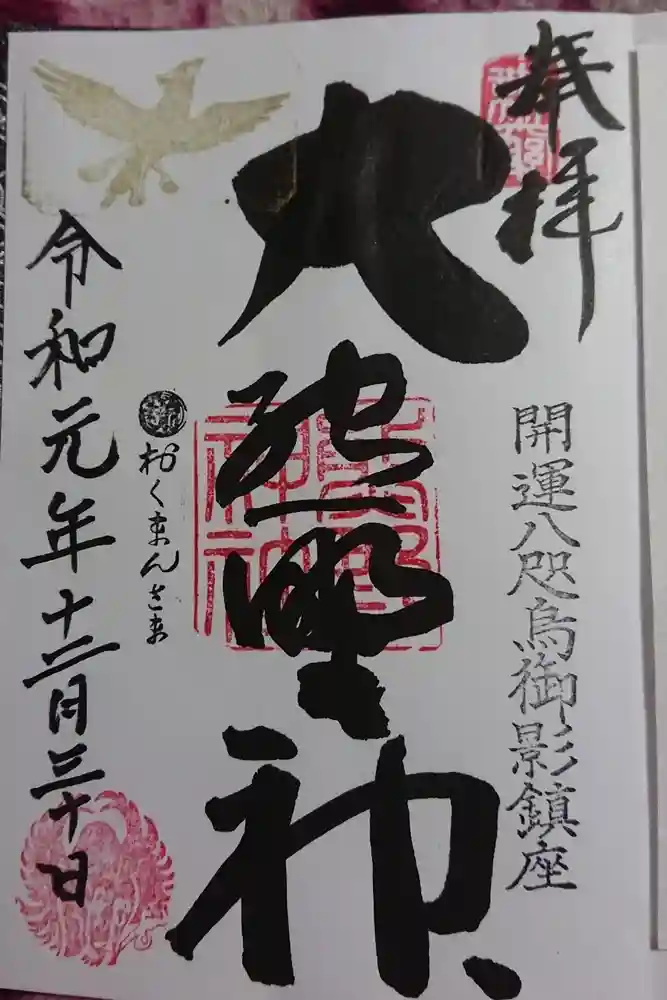 奉拝
開運八咫烏御影鎮座
大熊野神
おくまんさま
令和元年十二月三十日